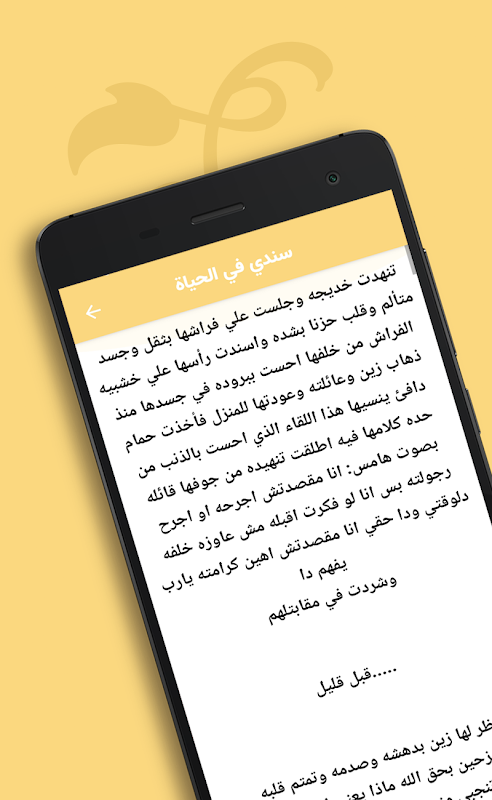 سندي في الحياة
تنهدت خديجه وجلست علي فراشها بثقل وجسد
متألم وقلب حزنا بشده واسندت رأسها علي خشبيه
الفراش من خلفها احست ببروده في جسدها منذ
ذهاب زين وعائلته وعودتها للمنزل فأخذت حمام
دافئ ينسيها هذا اللقاء الذي احست بالذنب من
حده كلامها فيه اطلقت تنهيده من جوفها قائله
بصوت هامس: انا مقصدتش اجرحه او اجرح
رجولته بس انا لو فكرت اقبله مش عاوزه خلفه
دلوقتي ودا حقي انا مقصدتش اهين كرامته يارب
يفهم دا
وشردت في مقابتلهم
.....قبل قليل
لها زين بدهشه وصدمه وتمتم قلبه
بحق الله ماذا